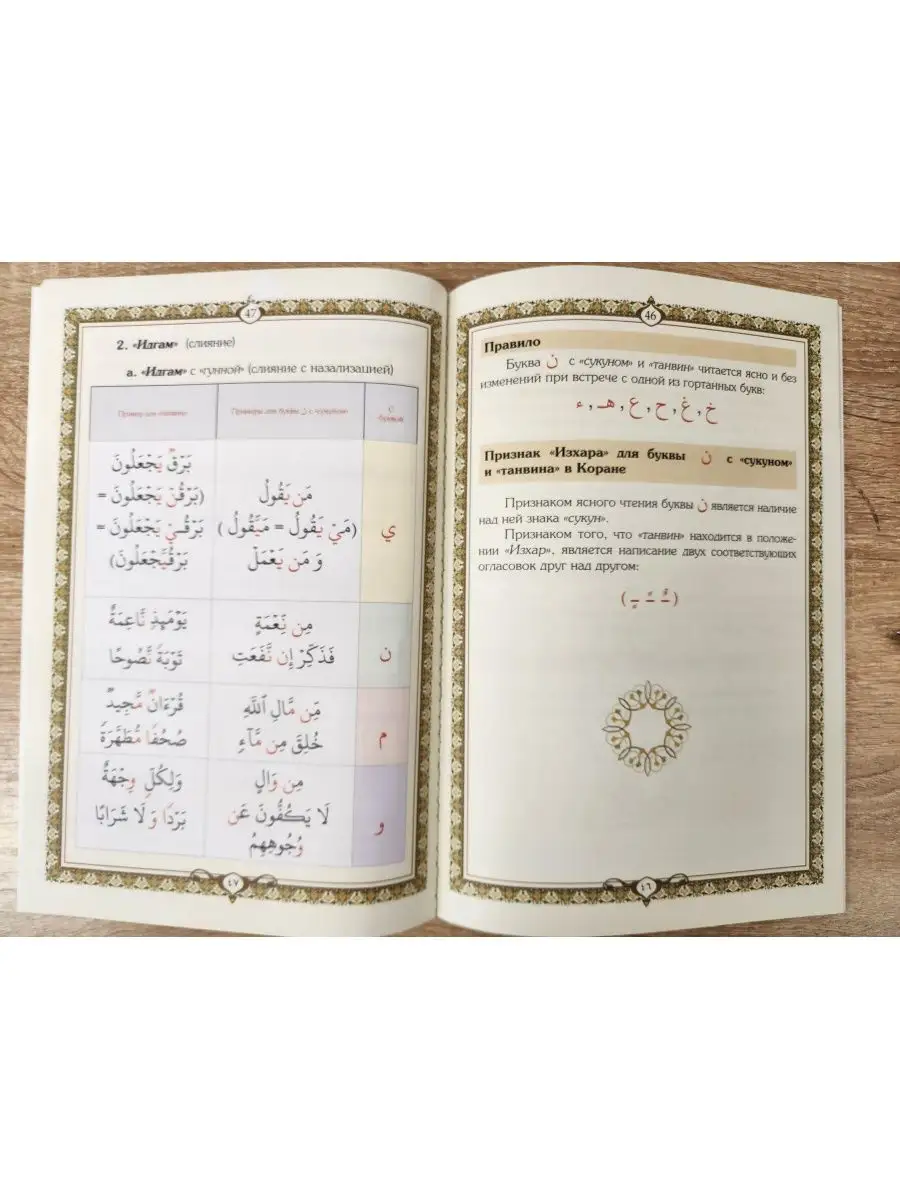 46
Правило
Буква ن с «сукуном» и «танвин» читается ясно и без
изменений при встрече с одной из гортанных букв:
خ, غ, ح, ع, هـ, ء
Признак «Изхара» для буквы ن с «сукуном»
и «танвина» в Коране
Признаком ясного чтения буквы ن является наличие
над ней знака «сукун».
Признаком того, что «танвин» находится в положе-
нии «Изхар», является написание двух соответствующих
огласовок друг над другом:
(ـٌ ـً ـٍ)
٤٦
47
2. «Идгам» (слияние)
а. «Идгам» с «гунной» (слияние с назализацией)
Примеры для буквы ن с «сукуном»
ي
مَن يَقُولُ
(مَيْ يَقُولُ = مَيَّقُولُ)
وَ مَن يَعْمَلْ
بَرْقٌ يَجْعَلُونَ
(بَرْقُنْ يَجْعَلُونَ =
بَرْقُـيْ يَجْعَلُونَ =
بَرْقُيَّجْعَلُونَ)
ن
مِن نِعْمَةٍ
فَذَكِّرْ إِن نَّفَعَتِ
يَوْمَئِذٍ نَّاعِمَةٌ
تَوْبَةً نَّصُوحًا
م
مِّن مَّالِ ٱللَّهِ
خُلِقَ مِن مَّآءٍ
قُرْءَانٌ مَّجِيدٌ
صُحُفًا مُّطَهَّرَةً
و
مِن وَالٍ
لَا يَكُفُّونَ عَن
وُجُوهِهِمُ
وَلِكُلٍّ وِجْهَةٌ
بَرْدًا وَ لَا شَرَابًا
٤٧